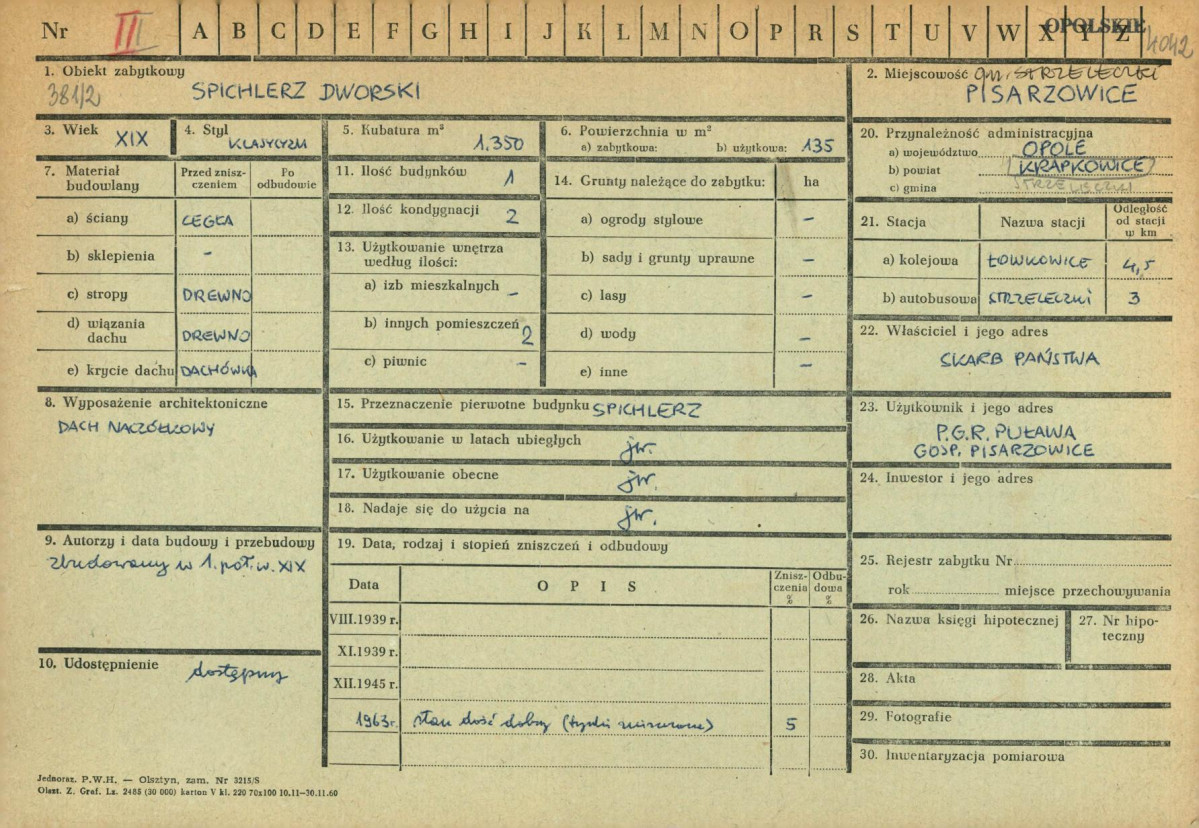 Nr III A B C D E F G H I J K L M N O P R S T U V W X Y Z OPOLSKIE 4042
1. Obiekt zabytkowy
381/2 SPICHLERZ DWORSKI
2. Miejscowość gm. STRZELECZKI
PISARZOWICE
3. Wiek XIX
4. Styl KLASYCYZM
5. Kubatura m³ 1.350
6. Powierzchnia w m²
a) zabytkowa: b) użytkowa: 135
7. Materiał budowlany
Przed zniszczeniem
Po odbudowie
a) ściany CEGŁA
b) sklepienia -
c) stropy DREWNO
d) wiązania dachu DREWNO
e) krycie dachu DACHÓWKA
8. Wyposażenie architektoniczne
DACH NACZÓŁKOWY
9. Autorzy i data budowy i przebudowy
zbudowany w 1. poł. w. XIX
10. Udostępnienie dostępny
11. Ilość budynków 1
12. Ilość kondygnacji 2
13. Użytkowanie wnętrza
według ilości:
a) izb mieszkalnych -
b) innych pomieszczeń 2
c) piwnic -
14. Grunty należące do zabytku: ha
a) ogrody stylowe -
b) sady i grunty uprawne -
c) lasy -
d) wody -
e) inne -
15. Przeznaczenie pierwotne budynku SPICHLERZ
16. Użytkowanie w latach ubiegłych jw.
17. Użytkowanie obecne jw.
18. Nadaje się do użycia na jw.
19. Data, rodzaj i stopień zniszczeń i odbudowy
Data OPIS Zniszczenia % Odbudowa %
VIII.1939 r.
XI.1939 r.
XII.1945 r.
1963 r. stan dość dobry (tynki 5
20. Przynależność administracyjna
a) województwo OPOLE
b) powiat KRAPKOWICE
c) gmina STRZELECZKI
21. Stacja Nazwa stacji Odległość od stacji w km
a) kolejowa ŁOWKOWICE 4,5
b) autobusowa STRZELECZKI 3
22. Właściciel i jego adres
SKARB PAŃSTWA
23. Użytkownik i jego adres
P.G.R. PUŁAWA
GOSP. PISARZOWICE
24. Inwestor i jego adres
25. Rejestr zabytku Nr
rok miejsce przechowywania
26. Nazwa księgi hipotecznej
27. Nr hipoteczny
28. Akta
29. Fotografie
30. Inwentaryzacja pomiarowa
Jednoraz. P.W.H. — Olsztyn, zam. Nr 3215/S
Olszt. Z. Graf. Lz. 2485 (30 000) karton V kl. 220 70x100 10.11—30.11.60